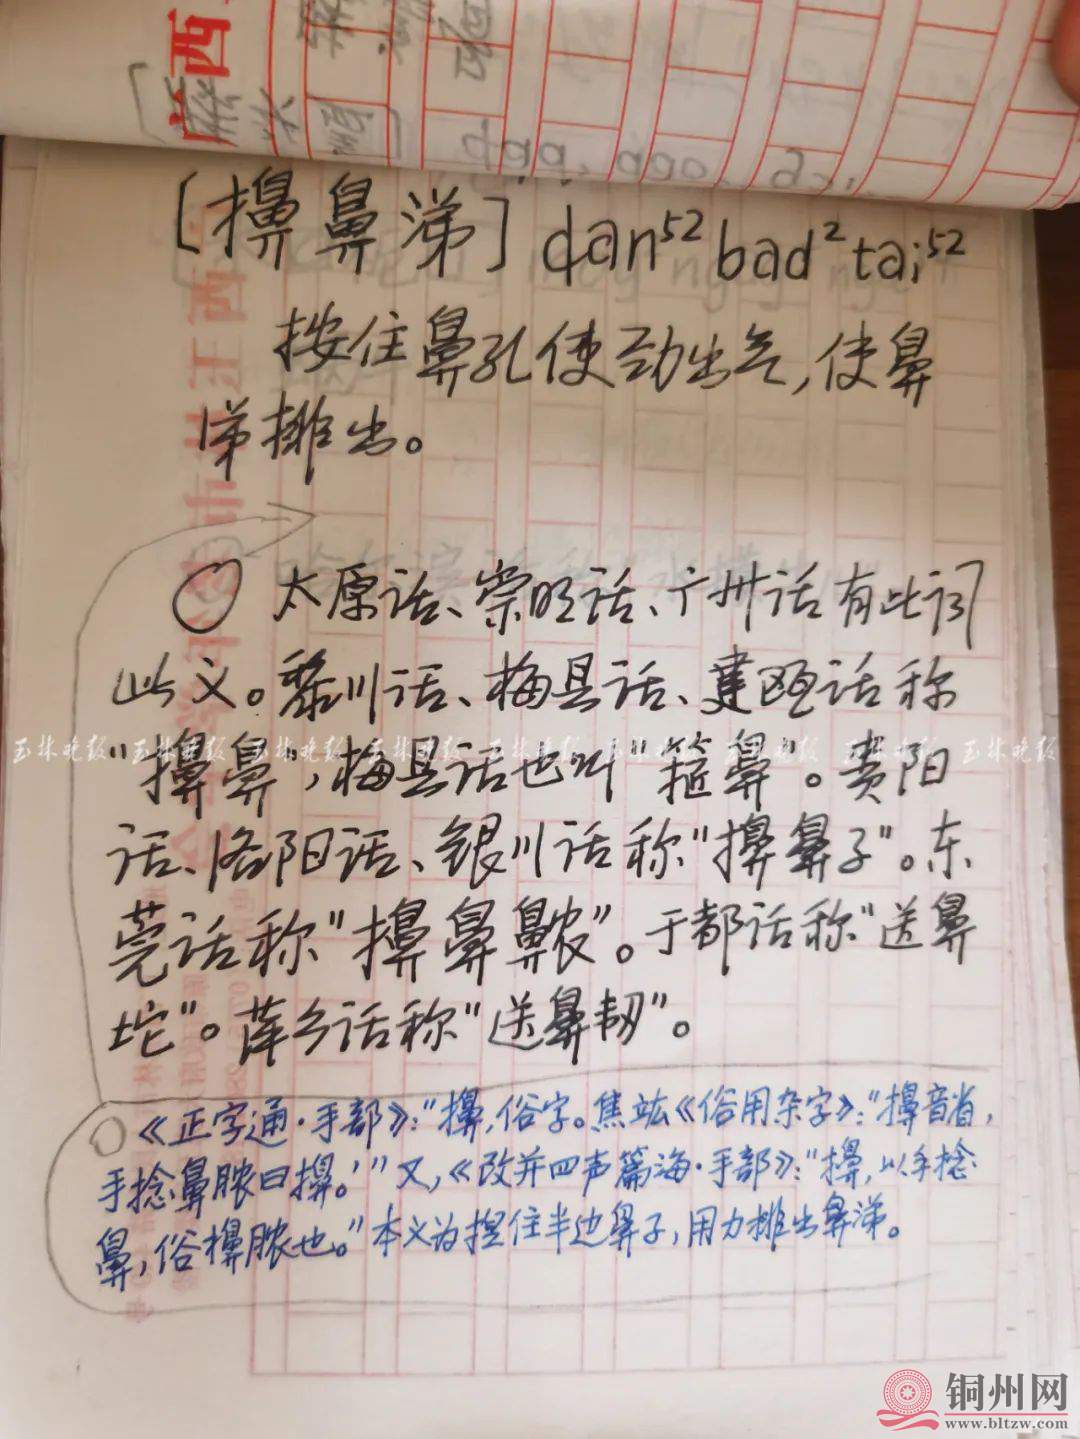 [擤鼻涕] dan⁵² bad² tai⁵²
按住鼻孔使劲出气,使鼻
涕排出。
○ 太原话、崇明话、广州话有此词
此义。黎川话、梅县话、建瓯话称
"擤鼻",梅县话也叫"箍鼻"。贵阳
话、洛阳话、银川话称"擤鼻子"。东
莞话称"擤鼻齈"。于都话称"送鼻
坨"。萍乡话称"送鼻韧"。
○《正字通·手部》:"擤,俗字。焦竑《俗用杂字》:'擤音省,
手捻鼻脓曰擤。'"又,《改并四声篇海·手部》:"擤,以手捻
鼻,俗擤脓也。"本义为捏住半边鼻子,用力排出鼻涕。
玉林晚报 玉林晚报 玉林晚报 玉林晚报 玉林晚报 玉林晚报 玉林晚报 玉林晚报 玉林晚报
铜州网
www.bltzw.com